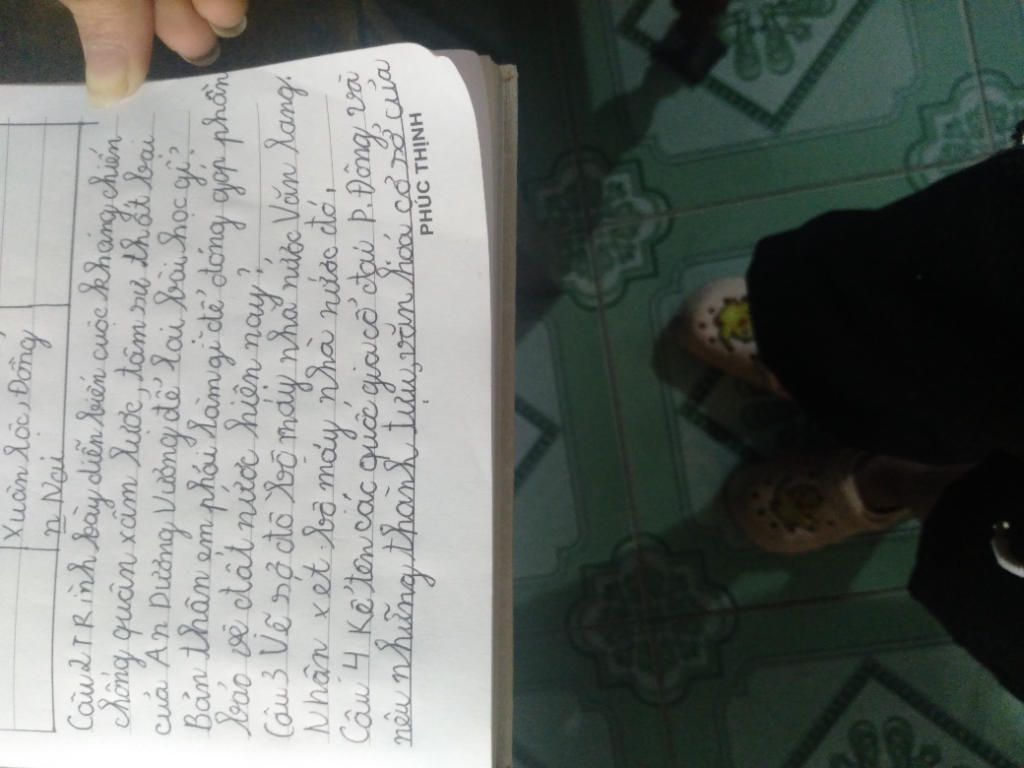 Xuân Lộc, Đồng
n Nai
Câu 2 TRình bày diễn biến cuộc kháng chiến
chống quân xâm lược, tâm sự thất bại
của An Dương Vương để lại bài học gì?
Bản thân em phải làm gì để đóng góp phần
bảo vệ đất nước hiện nay?
Câu 3 Vẽ sơ đồ bộ máy nhà nước Văn Lang.
Nhân xet bộ máy nhà nước đó,
Câu 4 Kể tên các quốc gia cổ đại P. Đông và
nêu những thành tựu, văn hóa cơ sở của
PHÚC THỊNH